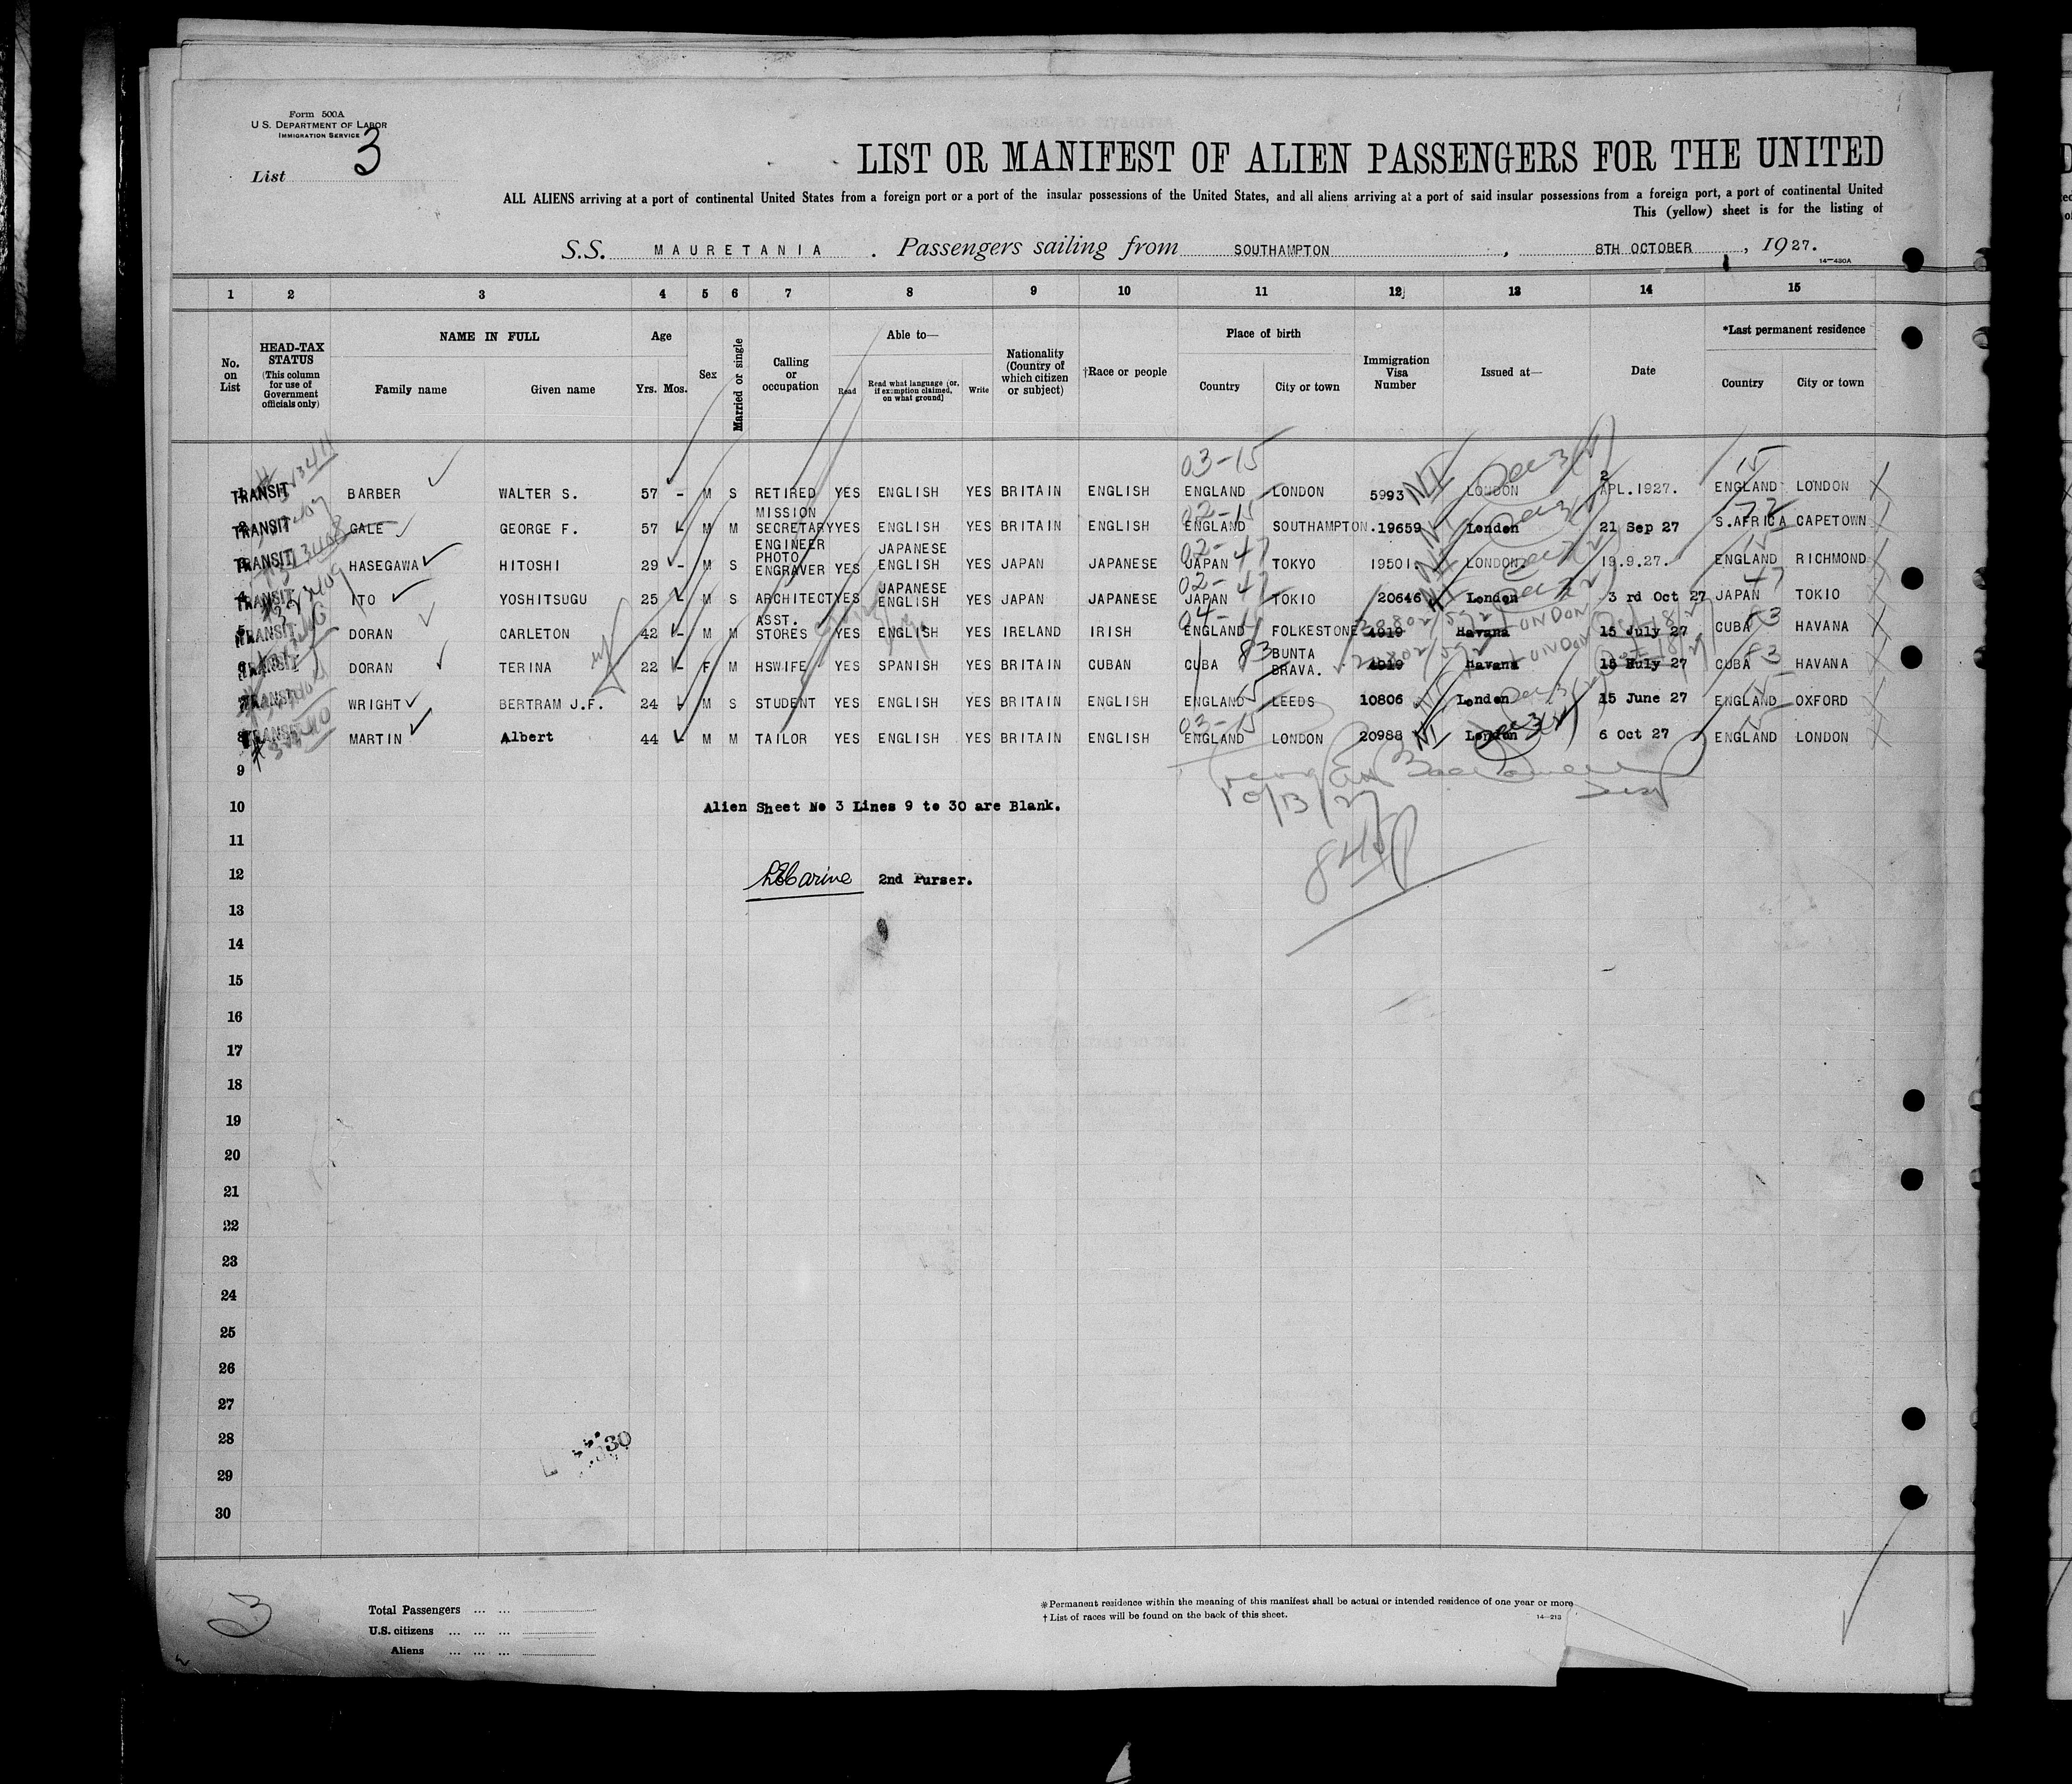 Form 500A
U. S. DEPARTMENT OF LABOR
IMMIGRATION SERVICE
List 3
LIST OR MANIFEST OF ALIEN PASSENGERS FOR THE UNITED
ALL ALIENS arriving at a port of continental United States from a foreign port or a port of the insular possessions of the United States, and all aliens arriving at a port of said insular possessions from a foreign port, a port of continental United
This (yellow) sheet is for the listing of
S.S. MAURETANIA . Passengers sailing from SOUTHAMPTON , 8TH OCTOBER , 1927.
14—430A
1 2 3 4 5 6 7 8 9 10 11 12 13 14 15
No. on List
HEAD-TAX STATUS (This column for use of Government officials only)
NAME IN FULL
Family name Given name
Age
Yrs. Mos.
Sex
Married or single
Calling or occupation
Able to—
Read Read what language (or, if exemption claimed, on what ground) Write
Nationality (Country of which citizen or subject)
†Race or people
Place of birth
Country City or town
Immigration Visa Number
Issued at—
Date
*Last permanent residence
Country City or town
03-15 15
TRANSIT BARBER WALTER S. 57 - M S RETIRED YES ENGLISH YES BRITAIN ENGLISH ENGLAND LONDON 5993 NI LONDON 2 APL.1927. ENGLAND LONDON
02-15 72
TRANSIT GALE GEORGE F. 57 M M MISSION SECRETARY YES ENGLISH YES BRITAIN ENGLISH ENGLAND SOUTHAMPTON. 19659 London 21 Sep 27 S.AFRICA CAPETOWN
02-47
TRANSIT HASEGAWA HITOSHI 29 - M S ENGINEER PHOTO ENGRAVER YES JAPANESE ENGLISH YES JAPAN JAPANESE JAPAN TOKYO 19501 LONDON 19.9.27. ENGLAND RICHMOND
02-47 47
TRANSIT ITO YOSHITSUGU 25 M S ARCHITECT YES JAPANESE ENGLISH YES JAPAN JAPANESE JAPAN TOKIO 20646 London 3 rd Oct 27 JAPAN TOKIO
TRANSIT DORAN CARLETON 42 - M M ASST. STORES YES ENGLISH YES IRELAND IRISH ENGLAND FOLKESTONE 4919 Havana LONDON 15 July 27 CUBA 83 HAVANA
TRANSIT DORAN TERINA 22 - F M HSWIFE YES SPANISH YES BRITAIN CUBAN CUBA 83 BUNTA BRAVA. 4919 Havana LONDON 15 Huly 27 CUBA 83 HAVANA
TRANSIT WRIGHT BERTRAM J.F. 24 M S STUDENT YES ENGLISH YES BRITAIN ENGLISH ENGLAND LEEDS 10806 London 15 June 27 ENGLAND OXFORD
03-15
TRANSIT MARTIN Albert 44 M M TAILOR YES ENGLISH YES BRITAIN ENGLISH ENGLAND LONDON 20988 NI London 6 Oct 27 ENGLAND LONDON
9
10 Alien Sheet No 3 Lines 9 to 30 are Blank.
11
12 2nd Purser.
13
14
15
16
17
18
19
20
21
22
23
24
25
26
27
28
29
30
3
Total Passengers ... ...
U.S. citizens ... ... ...
Aliens ... ... ...
*Permanent residence within the meaning of this manifest shall be actual or intended residence of one year or more
† List of races will be found on the back of this sheet.
14—213